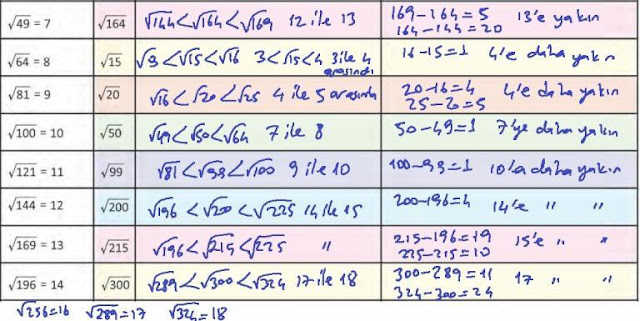 √49 = 7 √164 √144 < √164 < √169 12 ile 13 169-164=5 13'e yakın
164-144=20
√64 = 8 √15 √9 < √15 < √16 3 < √15 < 4 3 ile 4 arasında 16-15=1 4'e daha yakın
√81 = 9 √20 √16 < √20 < √25 4 ile 5 arasında 20-16=4 4'e daha yakın
25-20=5
√100 = 10 √50 √49 < √50 < √64 7 ile 8 50-49=1 7'ye daha yakın
√121 = 11 √99 √81 < √99 < √100 9 ile 10 100-99=1 10'a daha yakın
√144 = 12 √200 √196 < √200 < √225 14 ile 15 200-196=4 14'e " "
√169 = 13 √215 √196 < √215 < √225 " 215-196=19 15'e " "
225-215=10
√196 = 14 √300 √289 < √300 < √324 17 ile 18 300-289=11 17 " "
324-300=24
√256=16 √289=17 √324=18